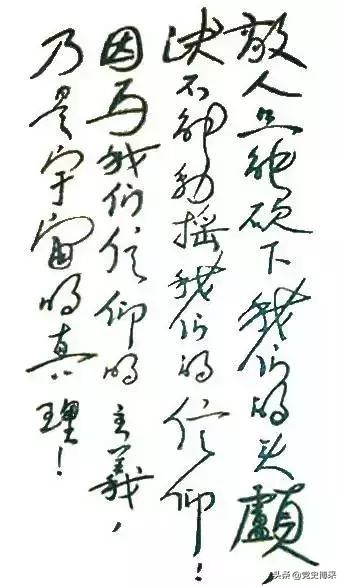 敌人只能砍下我们的头颅，
决不能动摇我们的信仰！
因为我们信仰的主义，
乃是宇宙的真理！
头条@党史博采